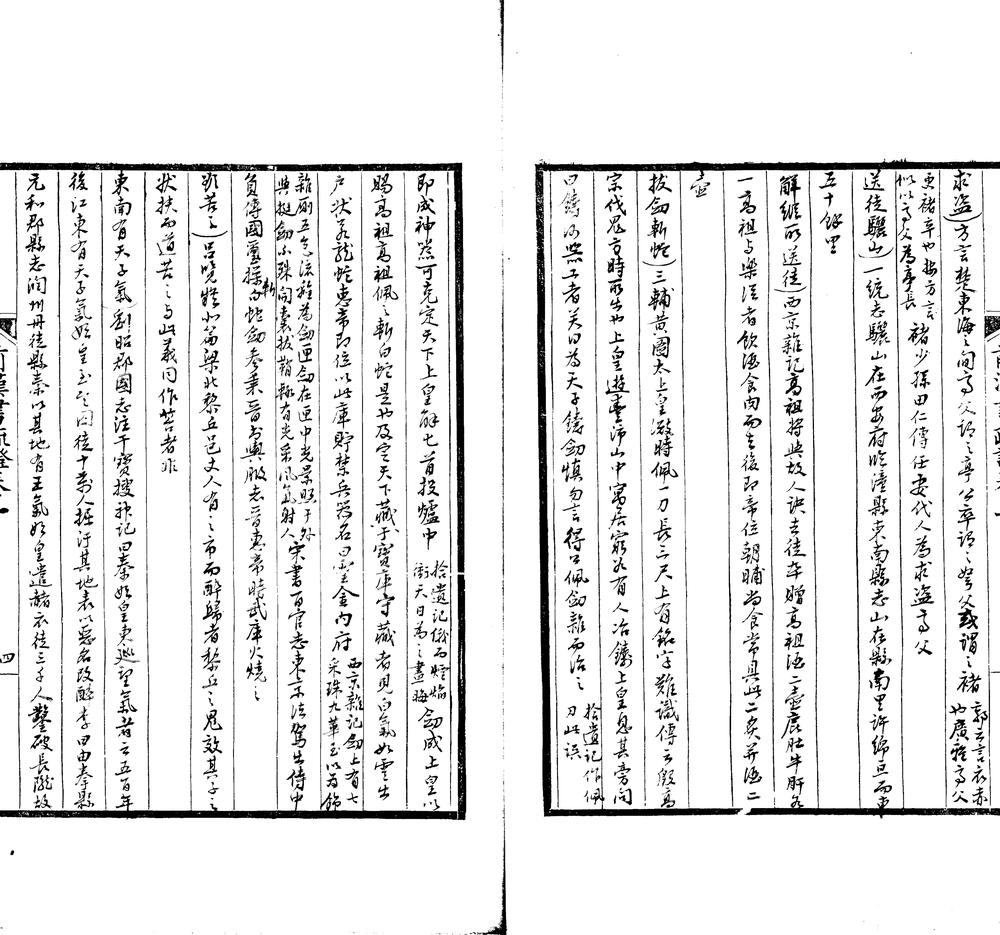 求盜）方言楚東海之间亭父謂之亭公卒謂之弩父或謂之褚郭云言衣赤也廣雅亭父
更褚卒也按方言似以亭父為亭長褚少孫田仁傳任安代人為求盜亭父
送徒驪山）一統志驪山在西安府臨潼縣東南縣志山在縣南里許綿亘而東
五十餘里
解縱所送徒）西京雜記高祖將與故人诀去徒卒贈高祖酒二壺鹿肚牛肝各
一高祖与樂從者飲酒食肉而去後即帝位朝晡尚食常具此二炙并酒二
壺
拔劍斬蛇）三輔黄圖太上皇微時佩一刀長三尺上有銘字難識傳云殷高
宗伐鬼方時所作也上皇遊豐沛山中寓居窮谷有人冶鑄上皇息其旁问
曰鑄何器工者笑曰為天子鑄劍慎勿言得公佩劍雜而治之拾遺記作佩刀此误
即成神器可克定天下上皇解匕首投爐中拾遺記俄而煙焰衝天日為之晝晦劍成上皇以
賜高祖高祖佩之斬白蛇是也及定天下藏于寶庫守藏者見白氣如雲出
户状若龍蛇惠帝即位以此庫貯禁兵器名曰靈金内府西京雜記劍上有七采珠九華玉以為飾
雜廁五色琉璃為劍匣劍在匣中光景照于外與挺劍不殊開匣拔鞘輒有光采風氣射人宋書百官志東京法駕出侍中
負傳國璽操斬白蛇劍参乘晋书輿服志晋惠帝時武库火燒之
欲苦之）吕览疑似篇梁北黎丘邑丈人有之市而醉歸者黎丘之鬼效其子之
状扶而道苦之与此義同作笞者非
東南有天子氣）劉昭郡國志注干寶搜神記曰秦始皇東巡望氣者云五百年
後江東有天子氣始皇至令囚徒十萬人掘汙其地表以惡名改醉李曰由拳縣
元和郡縣志润州丹徒縣秦以其地有王氣始皇遣赭衣徒三千人鑿破長隴故
四